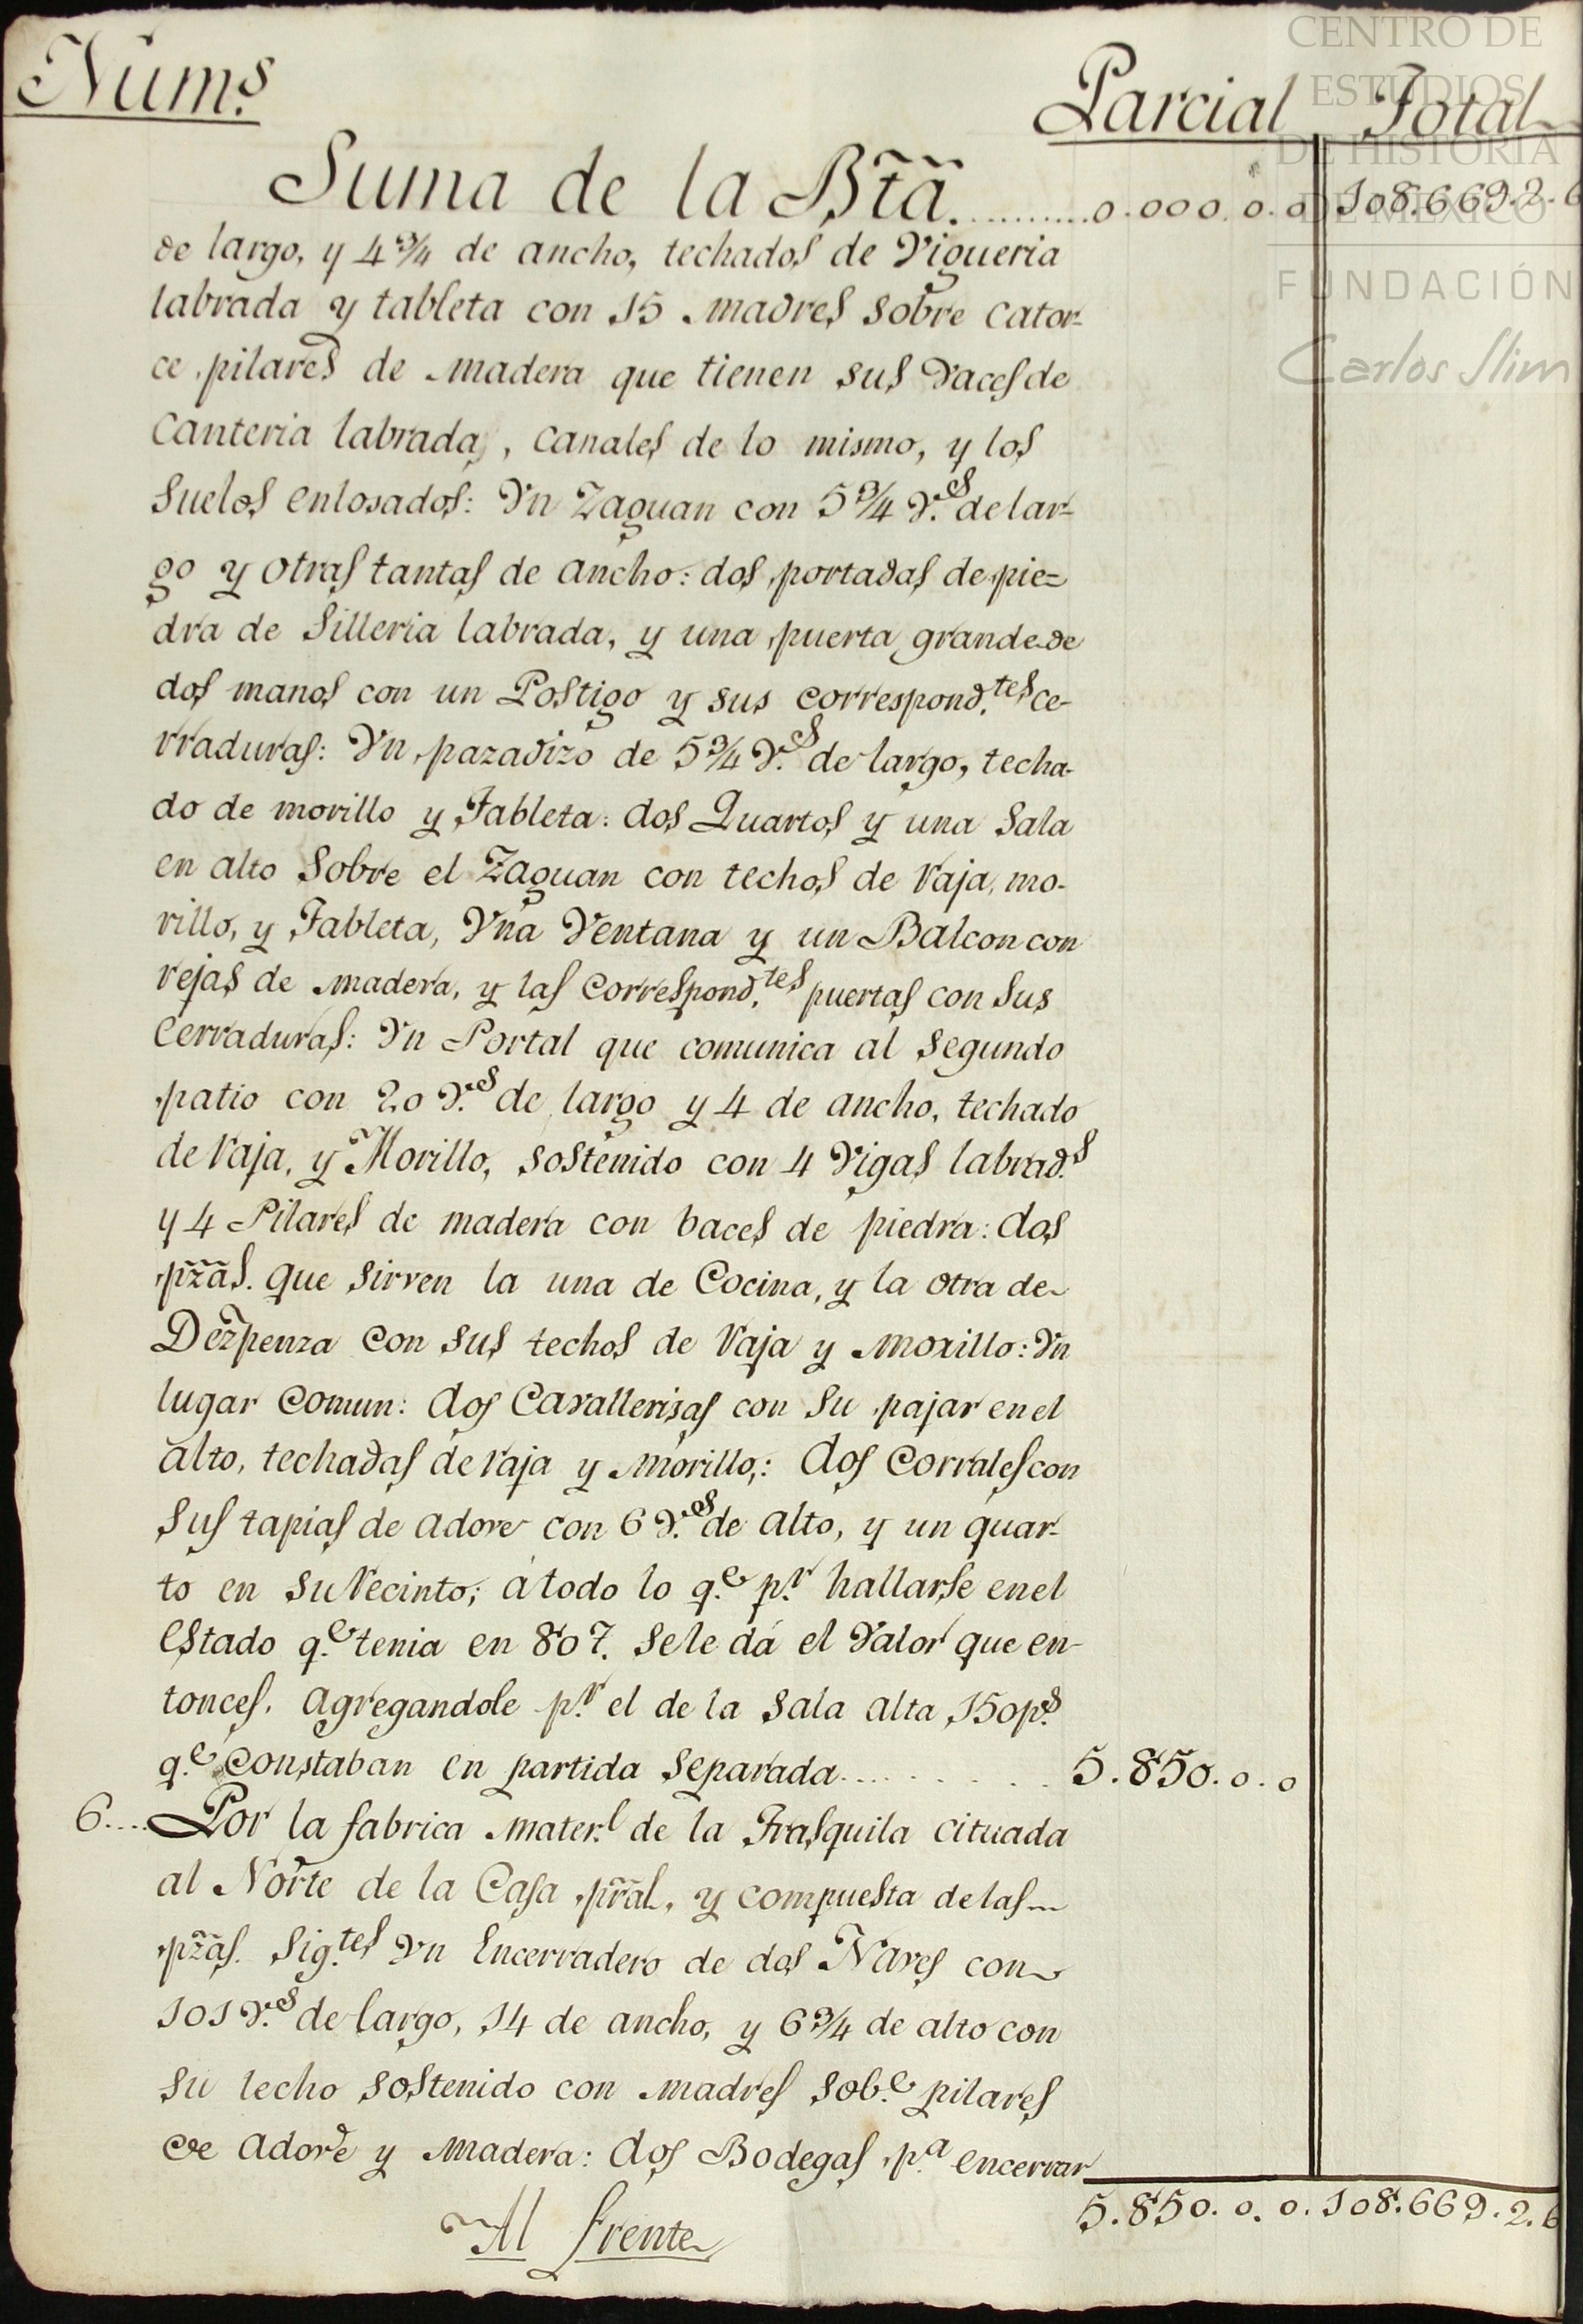 CENTRO DE
ESTUDIOS
DE HISTORIA
DE MÉXICO
FUNDACIÓN
Carlos Slim
Núms. Parcial Total
Suma de la Bta. .......... 0.000.0.0 108.669.2.6
de largo, y 4 3/4 de ancho, techados de Vigueria
labrada y tableta con 15 madres sobre cator-
ce pilares de madera que tienen sus Vaces de
Canteria labrada, canales de lo mismo, y los
suelos enlosados: Vn Zaguan con 5 3/4 V.s de lar-
go y otras tantas de ancho: dos portadas de pie=
dra de Silleria labrada, y una puerta grande de
dos manos con un Postigo y sus correspond.tes ce-
rraduras: Vn pazadizo de 5 3/4 V.s de largo, techa-
do de morillo y Tableta: dos Quartos y una Sala
en alto Sobre el Zaguan con techos de Vaja, mo-
rillo, y Tableta, Vna Ventana y un Balcon con
rejas de madera, y las correspond.tes puertas con sus
Cerraduras: Vn Portal que comunica al Segundo
patio con 20 V.s de largo y 4 de ancho, techado
de Vaja, y Morillo, sostenido con 4 Vigas labrad.s
y 4 Pilares de madera con baces de piedra: dos
pzas. que sirven la una de Cocina, y la otra de
Dezpenza con sus techos de Vaja y morillo: Vn
lugar Comun: dos Cavallerisas con su pajar en el
alto, techadas de Vaja y morillo,: dos Corrales con
sus tapias de adove con 6 V.s de alto, y un quar-
to en su recinto; á todo lo q.e p.r hallarse en el
estado q.e tenia en 807. se le dá el Valor que en-
tonces. agregandole p.r el de la Sala alta 150 p.s
q.e constaban en partida separada.......... 5.850.0.0
6.... Por la fabrica mater.l de la Trasquila cituada
al Norte de la Casa pral, y compuesta de las
pzas. sig.tes Vn Encerradero de dos Naves con
101 V.s de largo, 14 de ancho, y 6 3/4 de alto con
su techo sostenido con madres sob.e pilares
de adove y madera: dos Bodegas p.a encerrar
5.850.0.0. 108.669.2.6
Al frente